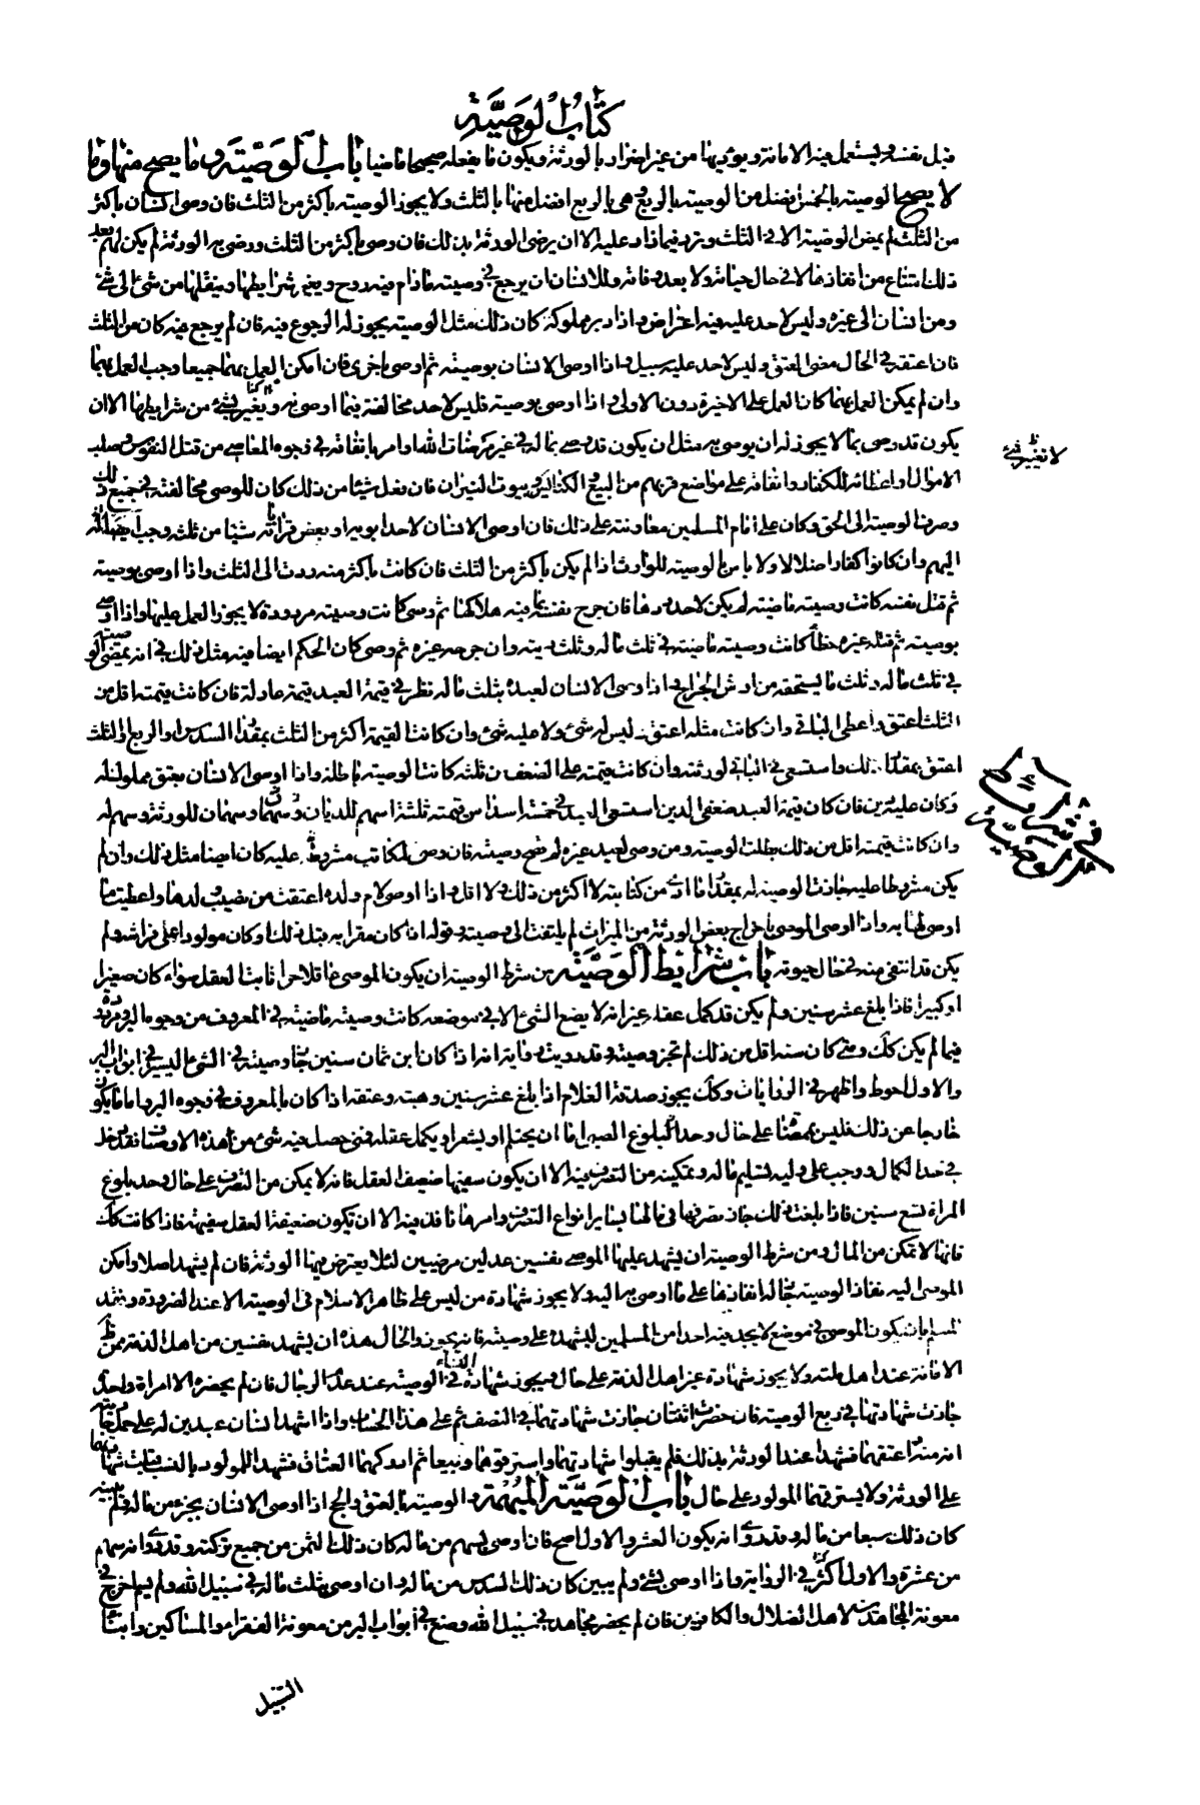 كتاب الوصية
قبل نفسه وليستعمل فيه الامانة ويؤديها من غير اضرار بالورثة ويكون ما يفعله صحيحا ماضيا باب الوصية وما يصح منها وما
لا يصح الوصية بالخمس افضل من الوصية بالربع وهى بالربع افضل منها بالثلث ولا يجوز الوصية باكثر من الثلث فان وصى انسان باكثر
من الثلث لم يمض الوصية الا فى الثلث وترد فيما زاد عليه الا ان يرضى الورثة بذلك فان وصى باكثر من الثلث ورضى به الورثة لم يكن لهم بعد
ذلك امتناع من انفاذها لا فى حال حياته ولا بعد وفاته وللانسان ان يرجع فى وصيته مادام فيه روح ويغير شرايطها وينقلها من شئ الى شئ
ومن انسان الى غيره وليس لاحد عليه فيه اعتراض واذا دبر مملوكه كان ذلك مثل الوصية يجوز له الرجوع فيه فان لم يرجع فيه كان من الثلث
فان اعتقه فى الحال مضى العتق وليس لاحد عليه سبيل واذا اوصى الانسان بوصية ثم اوصى باخرى فان امكن العمل بهما جميعا وجب العمل بهما
وان لم يمكن العمل بهما كان العمل على الاخيرة دون الاولى واذا اوصى بوصية فليس لاحد مخالفته فيما اوصى به ويغير بشئ من شرايطها الا ان
يكون قد وصى بما لا يجوز له ان يوصى به مثل ان يكون قد وصى بماله فى غير مرضات الله او امر بانفاقه فى وجوه المعاصى من قتل النفوس وسلب
لا تغيير شئ
الاموال او اعطائه للكفار او انفاقه على مواضع قربهم من البيع والكنائس وبيوت النيران فان فعل شيئا من ذلك كان للوصى مخالفته فى جميع ذلك
وصرف الوصية الى الحق وكان على امام المسلمين معاونته على ذلك فان اوصى الانسان لاحد ابويه او بعض قراباته شيئا من ثلثه وجب
اليهم وان كانوا كفارا ضلالا ولا باس بالوصية للوارث اذا لم يكن باكثر من الثلث فان كانت باكثر منه ردت الى الثلث واذا اوصى بوصية
ثم قتل نفسه كانت وصيته ماضية لم يكن لاحد ردها فان جرح نفسه بما فيه هلاكها ثم وصى كانت وصيته مردودة لا يجوز العمل عليها واذا اوصى
بوصية ثم قتله غيره خطأ كانت وصيته ماضية فى ثلث ماله وثلث ديته وان جرحه غيره ثم وصى كان الحكم ايضا فيه مثل ذلك فى انه يمضى الوصية
فى ثلث ماله وثلث ما يستحقه من ارش الجراح واذا اوصى الانسان لعبده بثلث ماله نظر فى قيمة العبد قيمة عادلة فان كانت قيمته اقل من
الثلث اعتق واعطى الباقى وان كانت مثله اعتق وليس له شئ ولا عليه شئ وان كانت القيمة اكثر من الثلث بمقدار السدس او الربع او الثلث
اعتق بمقدار ذلك واستسعى فى الباقى لورثته وان كانت قيمته على الضعف من ثلثه كانت الوصية باطلة واذا اوصى الانسان بعتق مملوك له
وكان عليه دين فان كان قيمة العبد ضعفى الدين استسعى العبد فى خمسة اسداس قيمته ثلثة اسهم للديان وسهمان للورثة وسهم له
فى شرائط الوصية
وان كانت قيمته اقل من ذلك بطلت الوصية ومن وصى لعبد غيره لم تصح وصيته فان وصى لمكاتب مشروط عليه كان ايضا مثل ذلك وان لم
يكن مشروطا عليه جازت الوصية له بمقدار ما ادى من كتابته لا اكثر من ذلك ولا اقل واذا اوصى لام ولده اعتقت من نصيب ولدها واعطيت ما
اوصى لها به واذا اوصى الموصى باخراج بعض الورثة من الميراث لم يلتفت الى وصيته وقوله اذا كان مقرا به قبل ذلك او كان مولودا على فراشه ولم
يكن قد انتفى منه فى حال حيوته باب شرايط الوصية من شرط الوصية ان يكون الموصى عاقلا حرا ثابت العقل سواء كان صغيرا
او كبيرا فاذا بلغ عشر سنين ولم يكن قد كمل عقله غير انه لا يضع الشئ الا فى موضعه كانت وصيته ماضية فى المعروف من وجوه البر ومردودة
فيما لم يكن كذلك ومتى كان سنه اقل من ذلك لم تجز وصيته وقد رويت رواية انه اذا كان ابن ثمان سنين جاز وصيته فى الشئ اليسير فى ابواب البر
والاول احوط واظهر فى الروايات وكذلك يجوز صدقة الغلام اذا بلغ عشر سنين وهبته وعتقه اذا كان بالمعروف فى وجوه البر واما ما يكون
خارجا عن ذلك فليس بممضاة على حال وحد البلوغ فى الصبى اما ان يحتلم او يشعر او يكمل عقله فمتى حصل فيه شئ من هذه الاوصاف فقد دخل
فى حد الكمال ووجب على وليه تسليم ماله وتمكينه من التصرف فيه الا ان يكون سفيها ضعيف العقل فانه لا يمكن من التصرف على حال وحد بلوغ
المراة تسع سنين فاذا بلغت ذلك جاز تصرفها فى مالها بساير انواع التصرف وامرها نافذ فيه الا ان تكون ضعيفة العقل سفيهة فاذا كانت كذلك
فانها لا تمكن من المال ومن شرط الوصية ان يشهد عليها الموصى نفسين عدلين مرضيين لئلا يعترض فيها الورثة فان لم يشهد اصلا وامكن
الموصى اليه نفاذ الوصية جاز له انفاذها على ما اوصى به اليه ولا يجوز شهادة من ليس على ظاهر الاسلام فى الوصية الا عند الضرورة وفقد
المسلم بان يكون الموصى فى موضع لا يجد فيه احدا من المسلمين ليشهده على وصيته فانه يجوز والحال هذه ان يشهد نفسين من اهل الذمة ممن ظاهره
الامانة عند اهل ملته ولا يجوز شهادة غير اهل الذمة على حال ويجوز شهادة النساء فى الوصية عند عدم الرجال فان لم يحضره الا امراة واحدة
جازت شهادتها فى ربع الوصية فان حضرت اثنتان جازت شهادتهما فى النصف ثم على هذا الحساب واذا اشهد انسان عبدين له على حمل بجارية
انه منه واعتقهما فشهدا عند الورثة بذلك فلم يقبلوا شهادتهما واسترقوهما وبيعا ثم ادركهما العتاق فشهدا للمولود بالنسب قبلت شهادتهما
على الورثة ولا يسترقهما المولود على حال باب الوصية المبهمة والوصية بالعتق والحج اذا اوصى الانسان بجزء من ماله ولم يبينه
كان ذلك سبعا من ماله وقد روى انه يكون العشر والاول اصح فان اوصى بسهم من ماله كان ذلك الثمن من جميع تركته وقد روى انه سهم
من عشرة والاول اكثر فى الرواية واذا اوصى بشئ ولم يبين كان ذلك السدس من ماله وان اوصى بثلث ماله فى سبيل الله ولم يسم اخرج فى
معونة المجاهدين لاهل الضلال والكافرين فان لم يحضر مجاهد فى سبيل الله وضع فى ابواب البر من معونة الفقراء والمساكين وابناء
السبيل